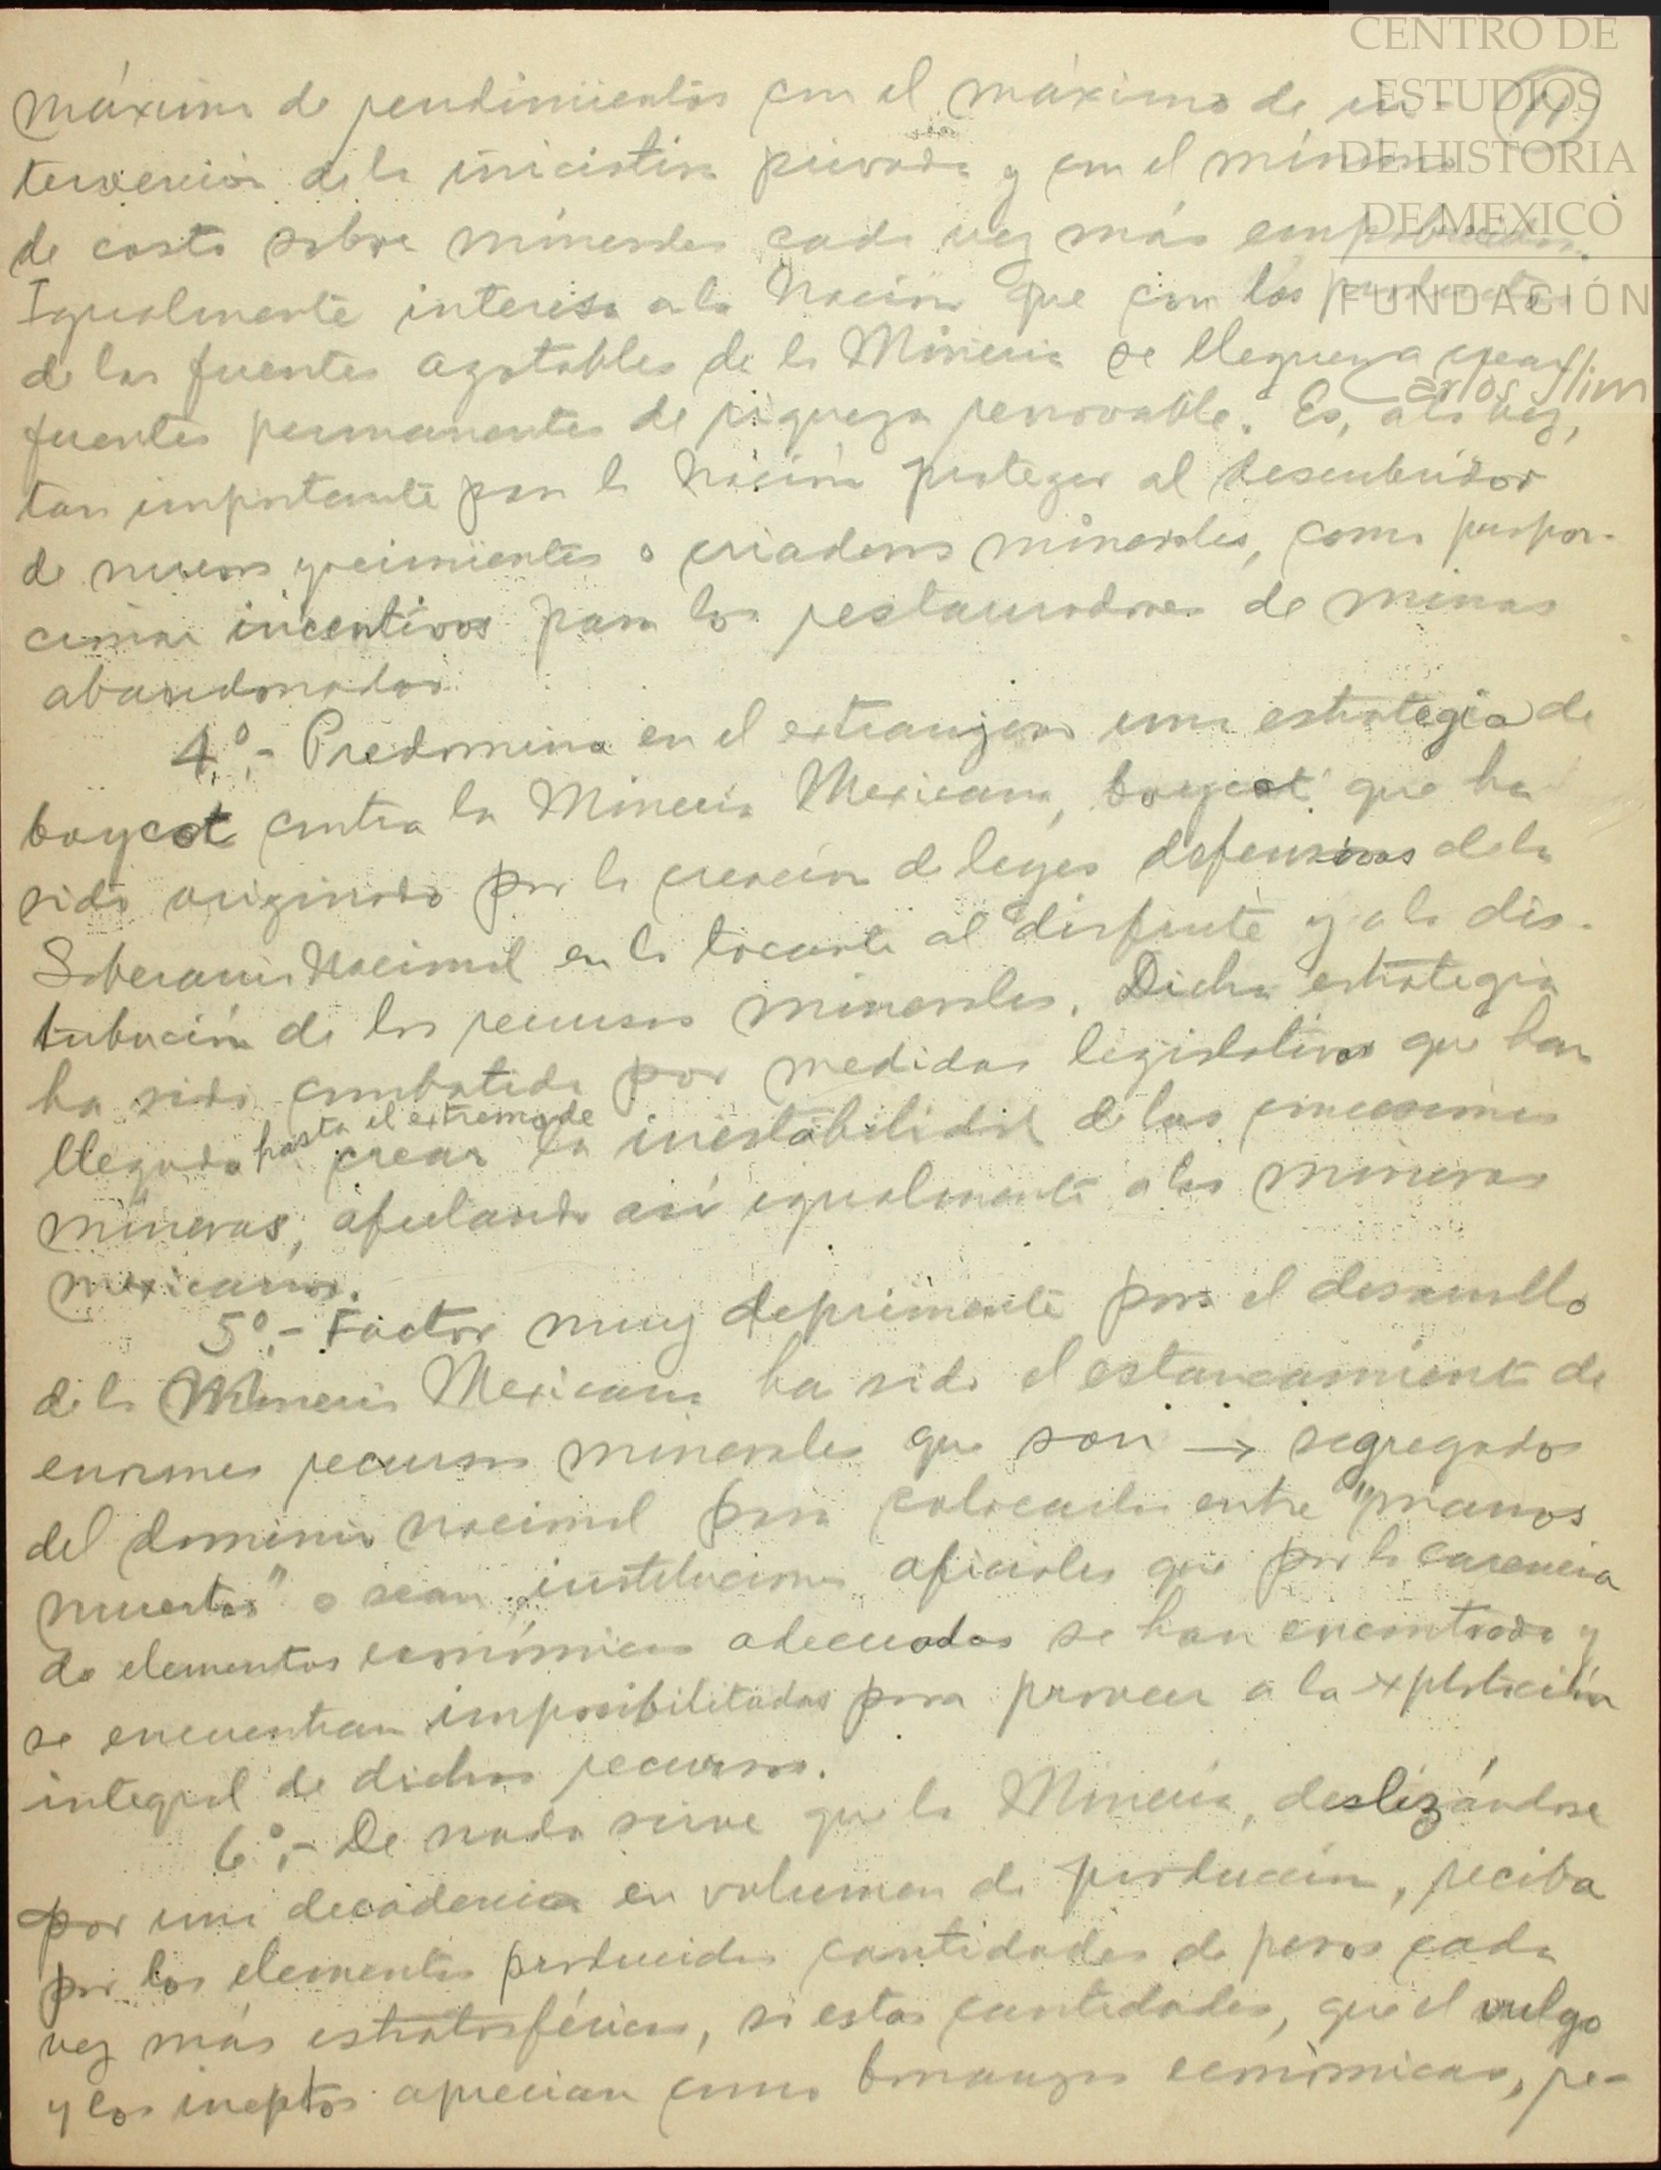 CENTRO DE
ESTUDIOS
DE HISTORIA
DE MEXICO
FUNDACIÓN
Carlos Slim
máximo de rendimientos con el máximo de in-
tervención de la iniciativa privada y con el mínimo
de costo sobre minerales cada vez más empobrecidos.
Igualmente interesa a la Nación que con los productos
de las fuentes agotables de la Minería se lleguen a crear
fuentes permanentes de riqueza renovable. Es, a la vez,
tan importante para la Nación proteger al descubridor
de nuevos yacimientos o criaderos minerales, como propor-
cionar incentivos para los restauradores de minas
abandonadas.
4º.- Predomina en el extranjero una estrategia de
boycot contra la Minería Mexicana, boycot que ha
sido originado por la creación de leyes defensivas de la
Soberanía Nacional en lo tocante al disfrute y a la dis-
tribución de los recursos minerales. Dicha estrategia
ha sido combatida por medidas legislativas que han
llegado hasta el extremo de crear la inestabilidad de las concesiones
mineras, afectando así igualmente a los mineros
mexicanos.
5º.- Factor muy deprimente para el desarrollo
de la Minería Mexicana ha sido el estancamiento de
enormes recursos minerales que son → segregados
del dominio nacional para colocarlos entre "manos
muertas" o sean instituciones oficiales que por la carencia
de elementos económicos adecuados se han encontrado y
se encuentran imposibilitadas para proveer a la explotación
integral de dichos recursos.
6º.- De nada sirve que la Minería, deslizándose
por una decadencia en volumen de producción, reciba
por los elementos producidos cantidades de pesos cada
vez más estratosféricas, si estas cantidades, que el vulgo
y los ineptos aprecian como bonanzas económicas, re-